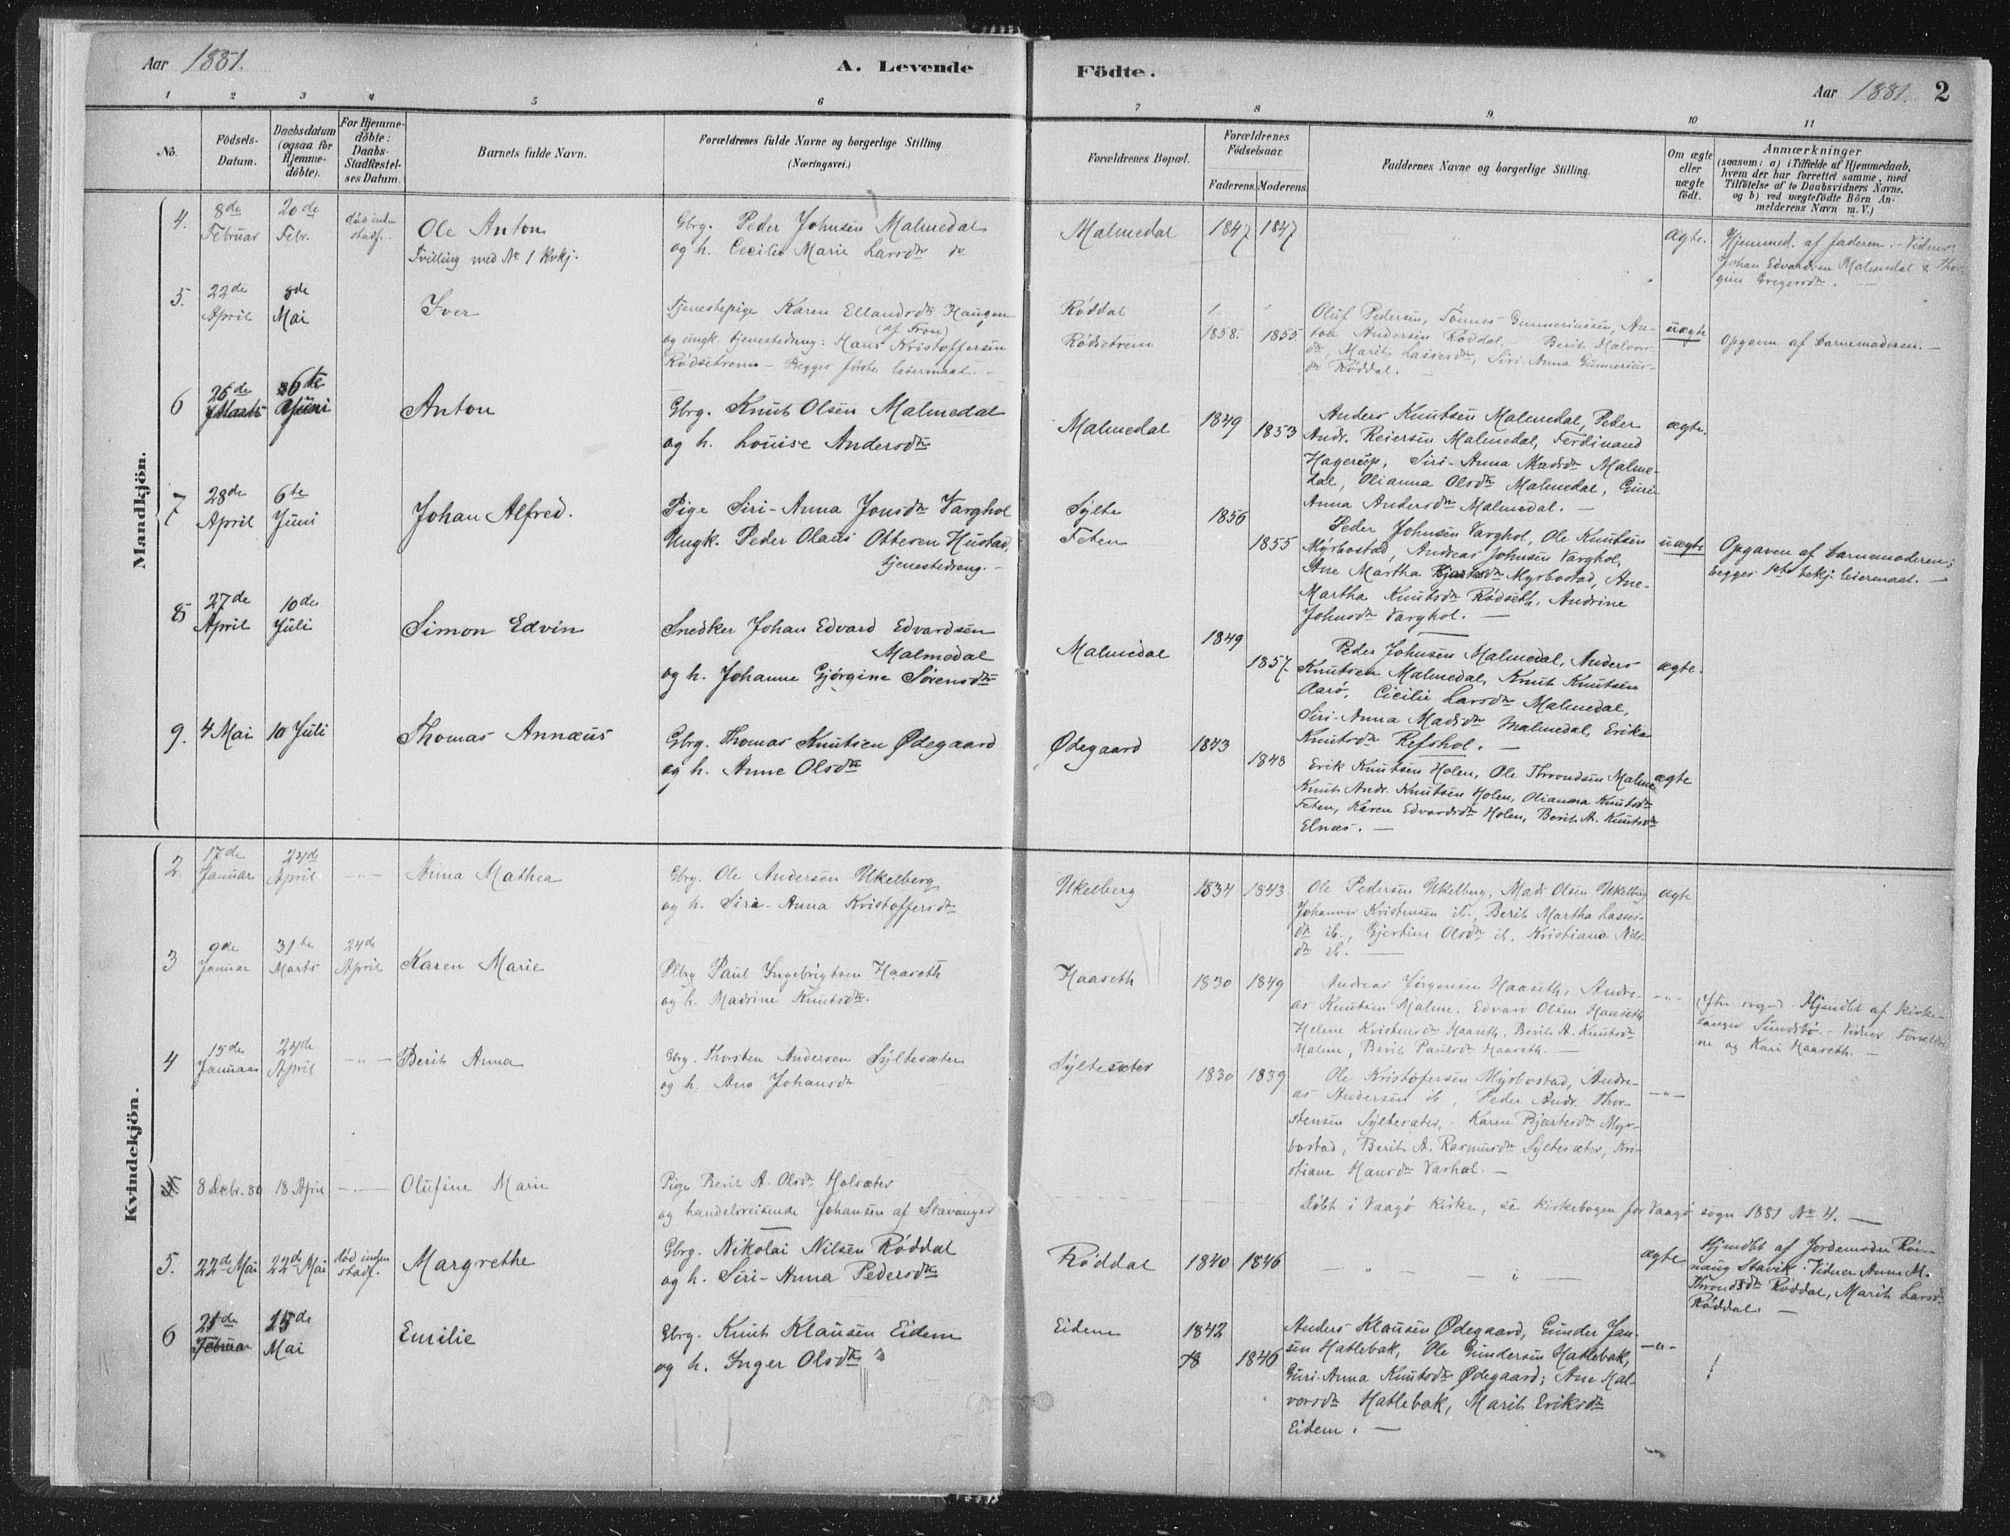 Aar 1881.
A. Levende
Födte.
Aar 1881. 2
1 2 3 4 5 6 7 8 9 10 11
No.
Födsels-
Datum.
Daabsdatum
(ogsaa for
Hjemme-
döbte).
For Hjemme-
döbte:
Daabs-
Stadfæstel-
ses Datum.
Barnets fulde Navn.
Forældrenes fulde Navne og borgerlige Stilling
(Næringsvei.)
Forældrenes Bopæl.
Forældrenes
Födselsaar.
Faderens. Moderens.
Faddernes Navne og borgerlige Stilling.
Om ægte
eller
uægte
födt.
Anmærkninger
(saasom: a) i Tilfælde af Hjemmedaab,
hvem der har forrettet samme, med
Tilföielse af to Daabsvidners Navne,
og b) ved uægtefödte Börn An-
melderens Navn m. V.)
Mandkjön.
4. 8de Februar
20de Febr.
död inden
stadf.
Ole Anton
Tvilling med No 1 Kvkj.
Gbrg. Peder Johnsen Malmedal
og h. Cecilie Marie Larsdtr
Malmedal 1847 1847
Ægte.
Hjemmed. af faderen. Vidner:
Johan Edvardsen Malmedal &
gine Gregersdtr. —
5. 22de April
8de Mai
Iver
Tjenestepige Karen Ellandsdtr Haugen
(af Fron)
og ungk. tjenestedreng: Hans Kristoffersen
Rödsetrem — Begges förste leiermaal. —
Röddal
Rödsetrem 1858. 1855.
Oluf Pedersen, Tönnes Gunneriussen, An-
ton Andersen Röddal, Berit Halvors-
dtr, Marit Lassesdtr, Siri-Anna Gunnerius-
dtr Röddal. —
uægte
Opgaven af barnemoderen. —
6 26de Marts
6te Juni
Anton
Gbrg. Knut Olsen Malmedal
og h. Louise Andersdtr
Malmedal 1849 1853
Anders Knutsen Malmedal, Peder
Andr. Reiersen Malmedal, Ferdinand
Hagerup, Siri-Anna Madsdtr Malme-
dal, Olianna Olsdtr Malmedal, Guri-
Anna Andersdtr Malmedal. —
ægte.
7 28de April
6te Juni
Johan Alfred.
Pige Siri-Anna Jonsdtr Varghol
Ungk. Peder Olaus Ottesen Hustad,
tjenestedreng. —
Sylte
Feten
1856
1855
Peder Johnsen Varghol, Ole Knutsen
Myrbostad, Andreas Johnsen Varghol,
Ane Martha Myrbostad, Ane-
Martha Knutsdtr Rödseth, Andrine
Johnsdtr Varghol. —
uægte
Opgaven af barnemoderen;
begges 1ste bekj. leiermaal. —
8 27de April
10de Juli
Simon Edvin
Snedker Johan Edvard Edvardsen
Malmedal
og h. Johanne Gjørgine Sörensdtr
Malmedal 1849
1857.
Peder Johnsen Malmedal, Anders
Knutsen Malmedal, Knut Knutsen
Aarö, Cicilie Larsdtr Malmedal,
Siri-Anna Madsdtr Malmedal, Erika
Knutsdtr Refshol. —
ægte.
9. 4 Mai 10 Juli
Thomas Annæus
Gbrg. Thomas Knutsen Ødegaard
og h. Anne Olsdtr
Ødegaard 1843
1843
Erik Knutsen Holen, Ole Throndsen Malme
Knut Andr. Knutsen Holen, Olianna Knutsdtr
Feten, Karen Edvardsdtr Holen, Berit A. Knutsdtr
Elnæs. —
ægte
Kvindekjön.
2. 17de Januar
24de April
Anna Mathea
Gbrg. Ole Andersen Ukelberg
og h. Siri-Anna Kristoffersdtr
Ukelberg 1834 1843
Ole Pedersen Ukelberg, Mads Olsen Ukelberg
Johannes Kristensen ib., Berit Martha Lasses-
dtr ib., Gjertine Olsdtr ib., Kristiane Nils-
dtr ib. —
ægte
3 9de Januar
31te Marts
24de April
Karen Marie
Plbrg Paul Ingebrigtsen Haaseth
og h. Madrine Knutsdtr.
Haaseth 1830 1849
Andreas Jörgensen Haaseth, Andre-
as Knutsen Malme, Edvard Olsen Haaseth
Helene Kristensdtr Haaseth, Berit A. Knutsdtr
Malme, Berit Paulsdtr Haaseth. —
— " —
Hjmdbt af kirke-
sanger Sundsbö. — Vidner: Foreldre-
ne og Kari Haaseth. —
4 15de Januar
24de April
Berit Anna
Gbrg. Thorsten Andersen Syltesæter
og h. Ane Johansdtr
Syltesæter 1830 1839
Ole Kristofersen Myrbostad, Andre-
as Andersen ib., Peder Andr. Thor-
stensen Syltesæter, — Karen Bjartesdtr Myr-
bostad, Berit A. Rasmusdtr Syltesæter, Kri-
stiane Hansdtr Varhol. —
— " —
8 Decbr. 80 18 April
Olufine Marie
Pige Berit A. Olsdtr Holsæter
og handelsreisende Johansen af Stavanger
Döbt i Vaagö Kirke, se kirkebogen for Vaagö sogn 1881 No 4. —
5. 22de Mai 22de Mai
död inden
stadf.
Margrethe
Gbrg. Nikolai Nilsen Röddal
og h. Siri-Anna Pedersdtr
Röddal 1840 1846
— " — " —
ægte
Hjmdbt af Jordemoder Rön-
naug Stavik. Vidner Anne M.
Throndsdtr Röddal, Marit Larsdtr
Röddal. —
6 21de Februar
15de Mai
Emilie
Gbrg. Knut Klausen Eidem
og h. Inger Olsdtr
Eidem 1842
18 1846
Anders Klausen Ødegaard, Gunder Jan-
sen Hatlebak, Ole Gundersen Hatlebak,
Guri-Anna Knutsdtr Ødegaard; Ane Hal-
vorsdtr Hatlebak, Marit Eriksdtr
Eidem. —
— " —